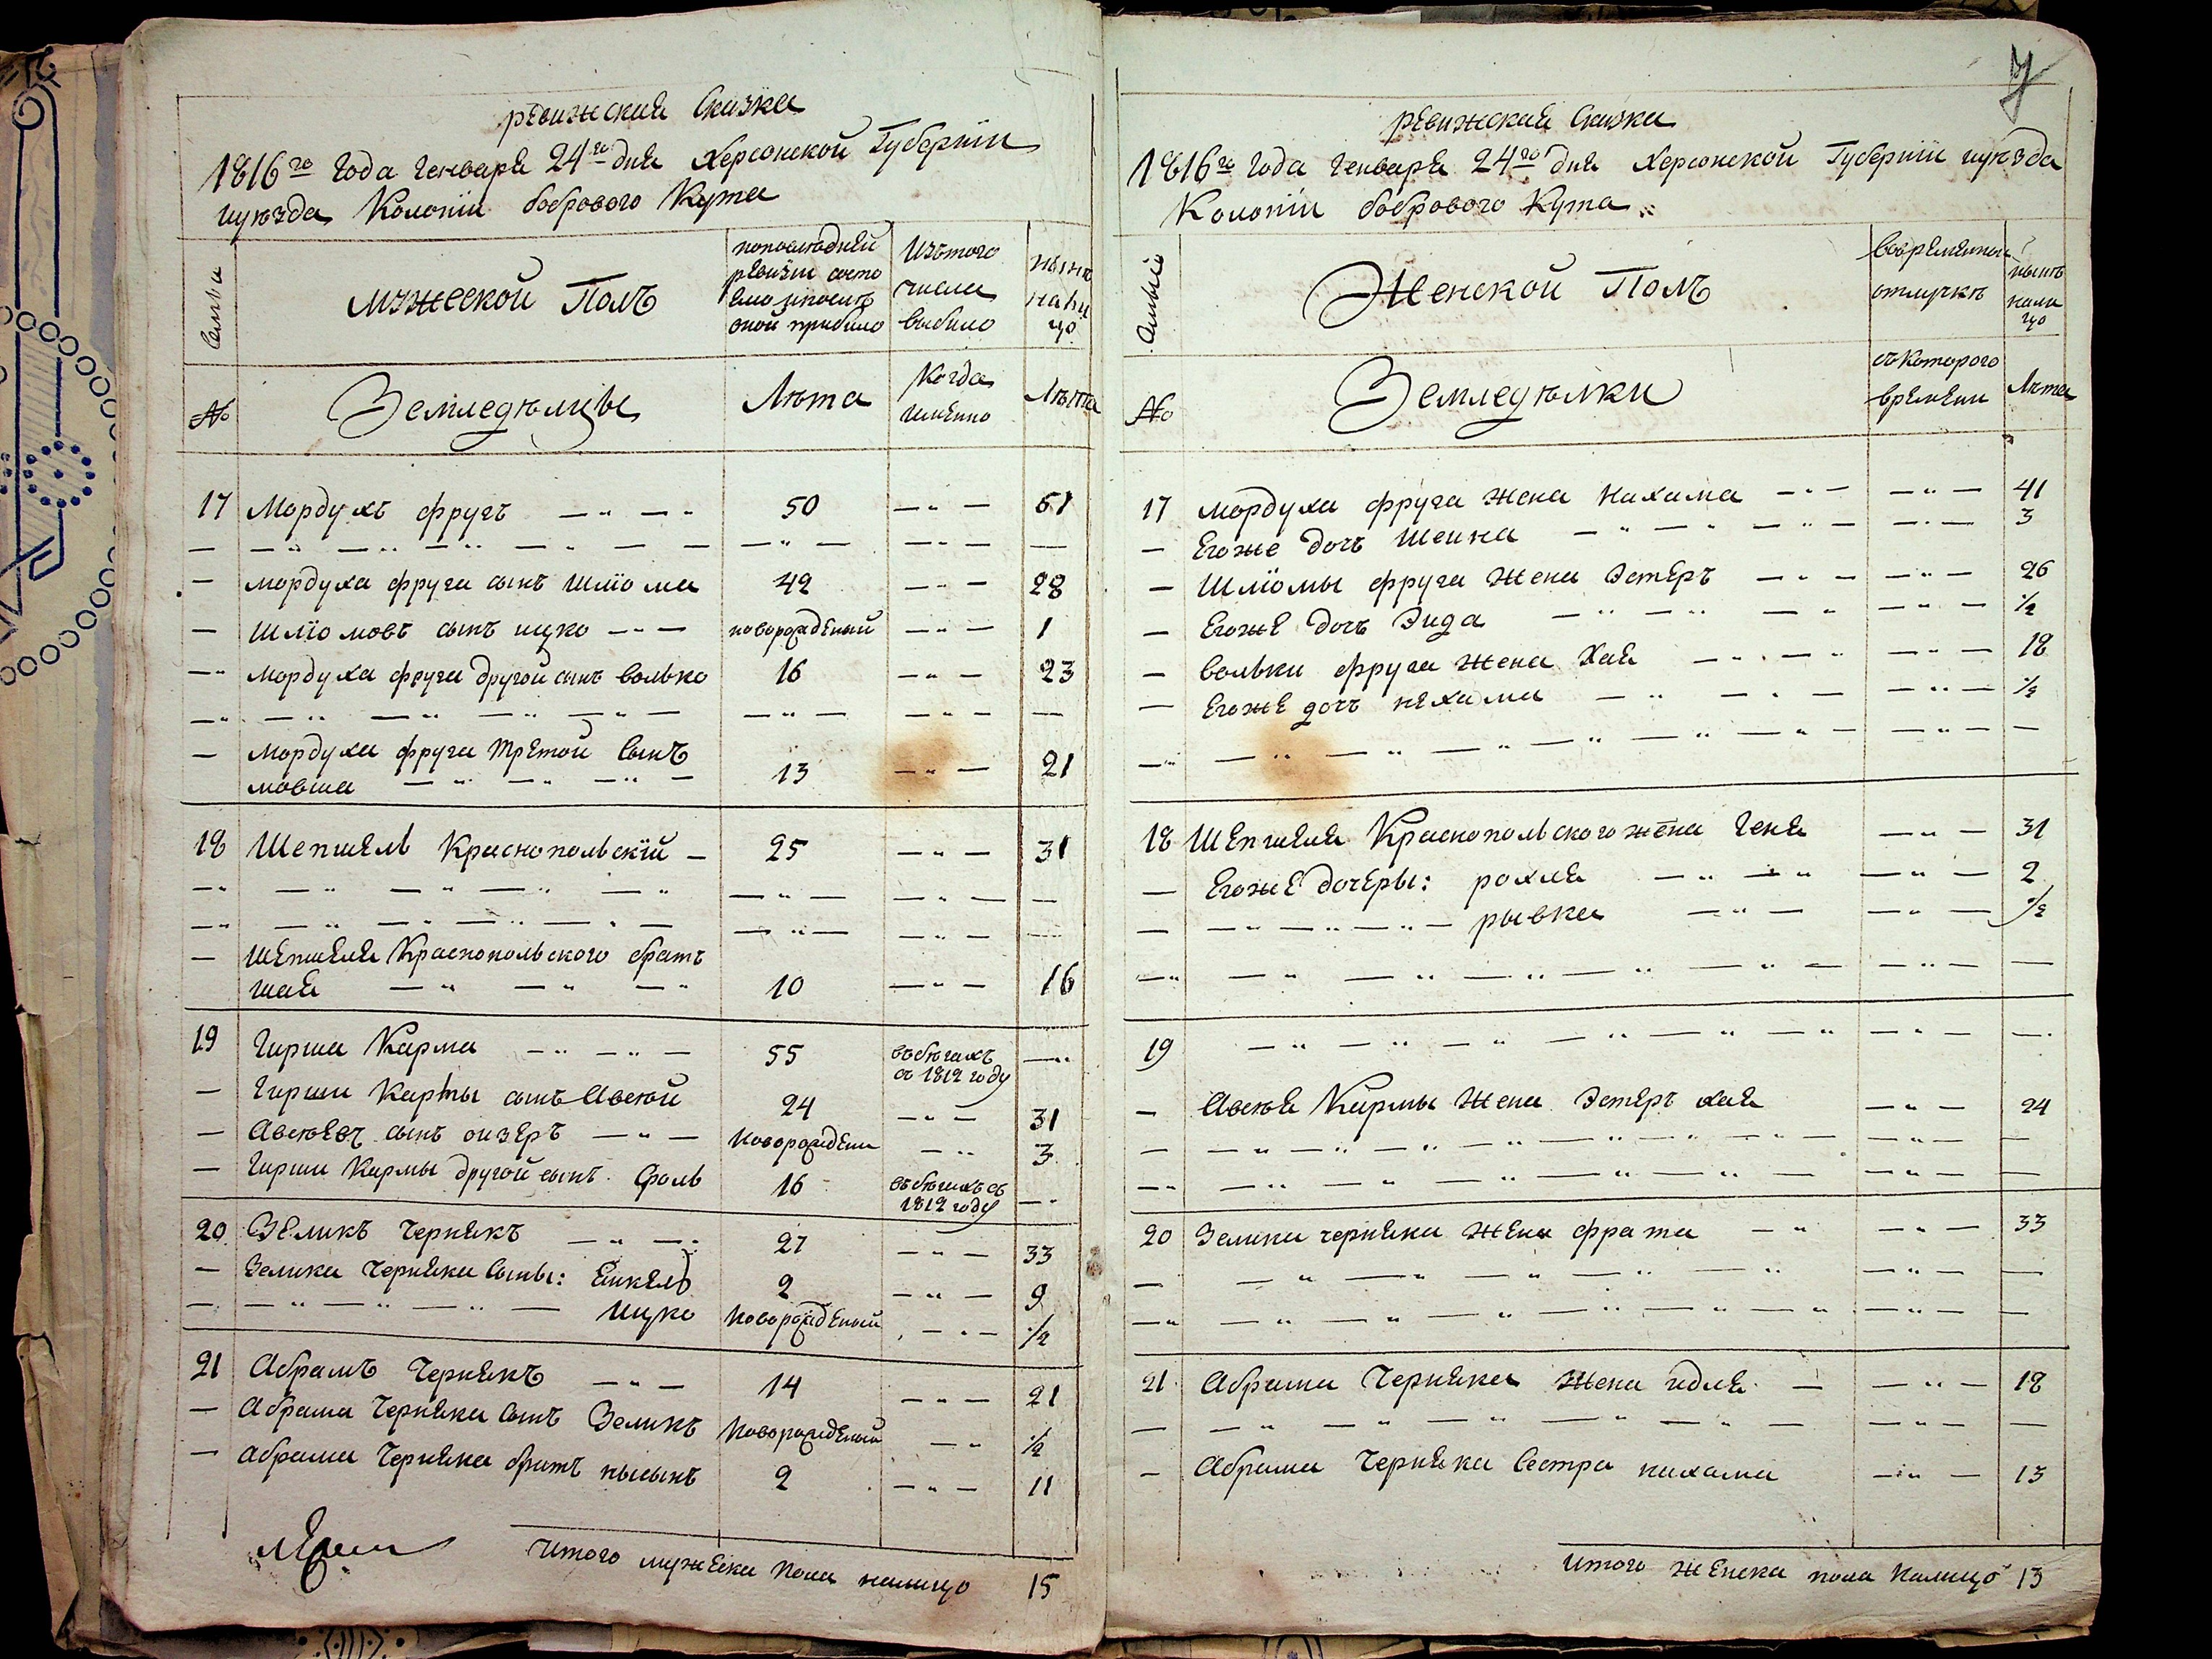 ревижская Сказка
1816го Года Генваря 24го дня Херсонской Губернїи
иуезда Колонїи боброваго Кута
Семьи
мужеской Полъ
попоследней ревизїи состояло ипосле оной прибыло
Изътого числа выбыло
ныне налицо
№
Земледельцы
Лѣта
Когда именно
Лѣта
17 Мордухъ фругъ — „ — „ 50 — „ — 51
— — „ — „ — „ — „ — — — „ — — „ — —
— мордуха фруга сынъ шлїома 42 — „ — 28
— шлїомовъ сынъ ицко — „ — новорожденый — „ — 1
— „ мордуха фруга другой сынъ волько 16 — „ — 23
— „ — „ — „ — „ — „ — — „ — — „ — —
— мордуха фруга третой сынъ
мовша — „ — „ — „ — 13 — „ — 21
18 Шепшель Краснопольскїй — 25 — „ — 31
— „ — „ — „ — „ — „ — „ — — „ — —
— „ — „ — „ — „ — „ — — „ — — „ — —
— шепшеля Краснопольского братъ
шая — „ — „ — „ 10 — „ — 16
19 Гирша Карма — „ — „ — 55 въбегахъ с 1812 году — „
— Гирши Кармы сынъ Авсюй 24 — „ — 31
— Авсюевъ сынъ оизеръ — „ — новорожден — „ 3
— Гирши Кармы другой сынъ Сроль 16 въбегахъ съ 1812 году — „
20 Зеликъ Чернякъ — „ — „ 27 — „ — 33
— Зелика Черняка сыны: Еикель 2 — „ — 9
— — „ — „ — „ — ицко новорожденый — „ — ½
21 Абрамъ Чернякъ — „ — 14 — „ — 21
— Абрама Черняка сынъ Зеликъ новорожденый — „ ½
— абрама Черняка братъ нысынъ 2 — „ — 11
Итого мужеска пола налицо 15
7
ревижская Сказка
1816го Года Генваря 24го дня Херсонской Губернїи иуезда
Колонїи боброваго Кута
Семьи
Женской Полъ
вовременной отлучке
ныне налицо
№
Земледелки
съкоторого времени
Лѣта
17 мордуха фруга жена нахама — „ — — „ — 41
— Егоже дочъ шейна — „ — „ — „ — — „ — 3
— шлїомы фруга жена Эстеръ — „ — — „ — 26
— Егоже дочъЭида — „ — „ — „ — „ — ½
— вольки фруга жена Хая — „ — „ — „ — 18
— Егоже дочъ нехама — „ — „ — — „ — ½
— „ — „ — „ — „ — „ — „ — „ — — „ — —
18 шепшеля Краснопольского жена Геня — „ — 31
— Егоже дочеры: рохля — „ — „ — „ — 2
— — „ — „ — „ — рывка — „ — — „ — ½
— „ — „ — „ — „ — „ — „ — — „ — —
19 — „ — „ — „ — „ — „ — „ — „ — — „
— Авсюя Кармы жена Эстеръ хая — „ — 24
— — „ — „ — „ — „ — „ — „ — „ — — „ — —
— „ — „ — „ — „ — „ — „ — — „ — —
20 Зелика черняка жена фрата — „ — „ — 33
— — „ — „ — „ — „ — „ — „ — —
— „ — „ — „ — „ — „ — „ — „ — „ — —
21 Абрама Черняка жена идля — — „ — 18
— — „ — „ — „ — „ — „ — — „ — —
— Абрама Черняка Сестра нахама — „ — 13
Итого женска пола налицо 13